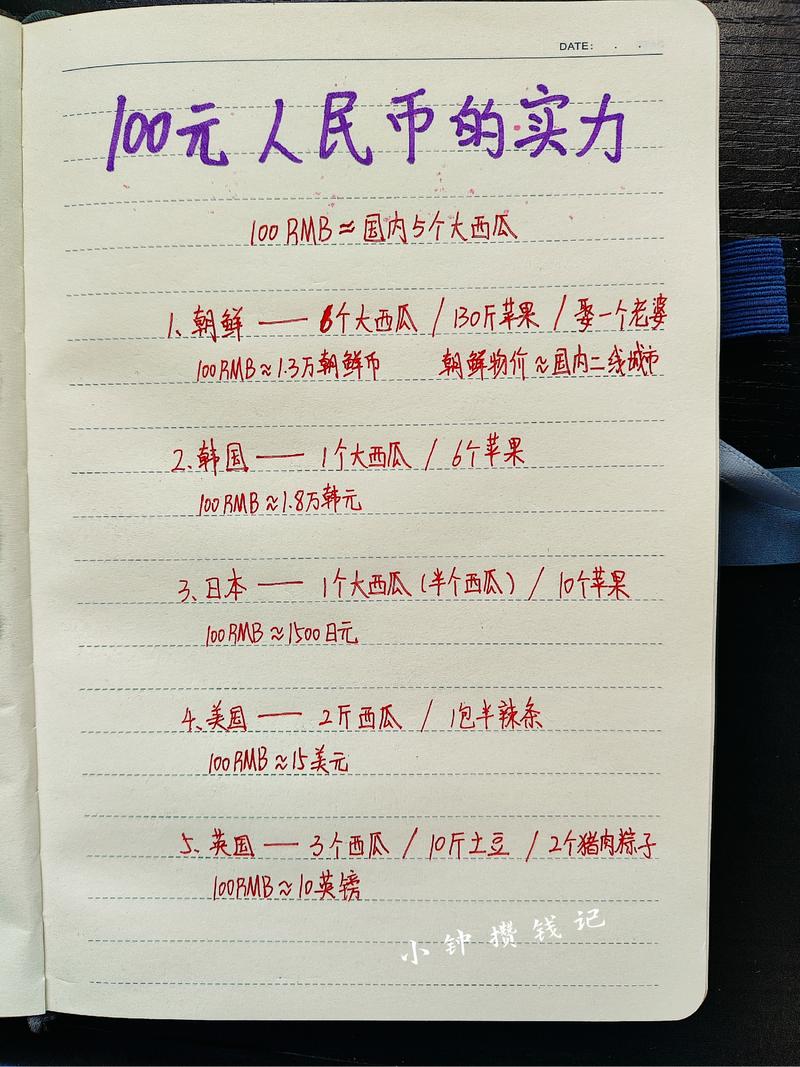 DATE: . .
100元人民币的实力
100RMB≈国内5个大西瓜
1、朝鲜——6个大西瓜/130斤苹果/娶一个老婆
100RMB≈1.3万朝鲜币 朝鲜物价≈国内二线城市
2、韩国——1个大西瓜/6个苹果
100RMB≈1.8万韩元
3、日本——1个大西瓜(半个西瓜)/10个苹果
100RMB≈1500日元
4、美国——2斤西瓜/1包半辣条
100RMB≈15美元
5、英国——3个西瓜/10斤土豆/2个猪肉粽子
100RMB≈10英镑
小钟攒钱记